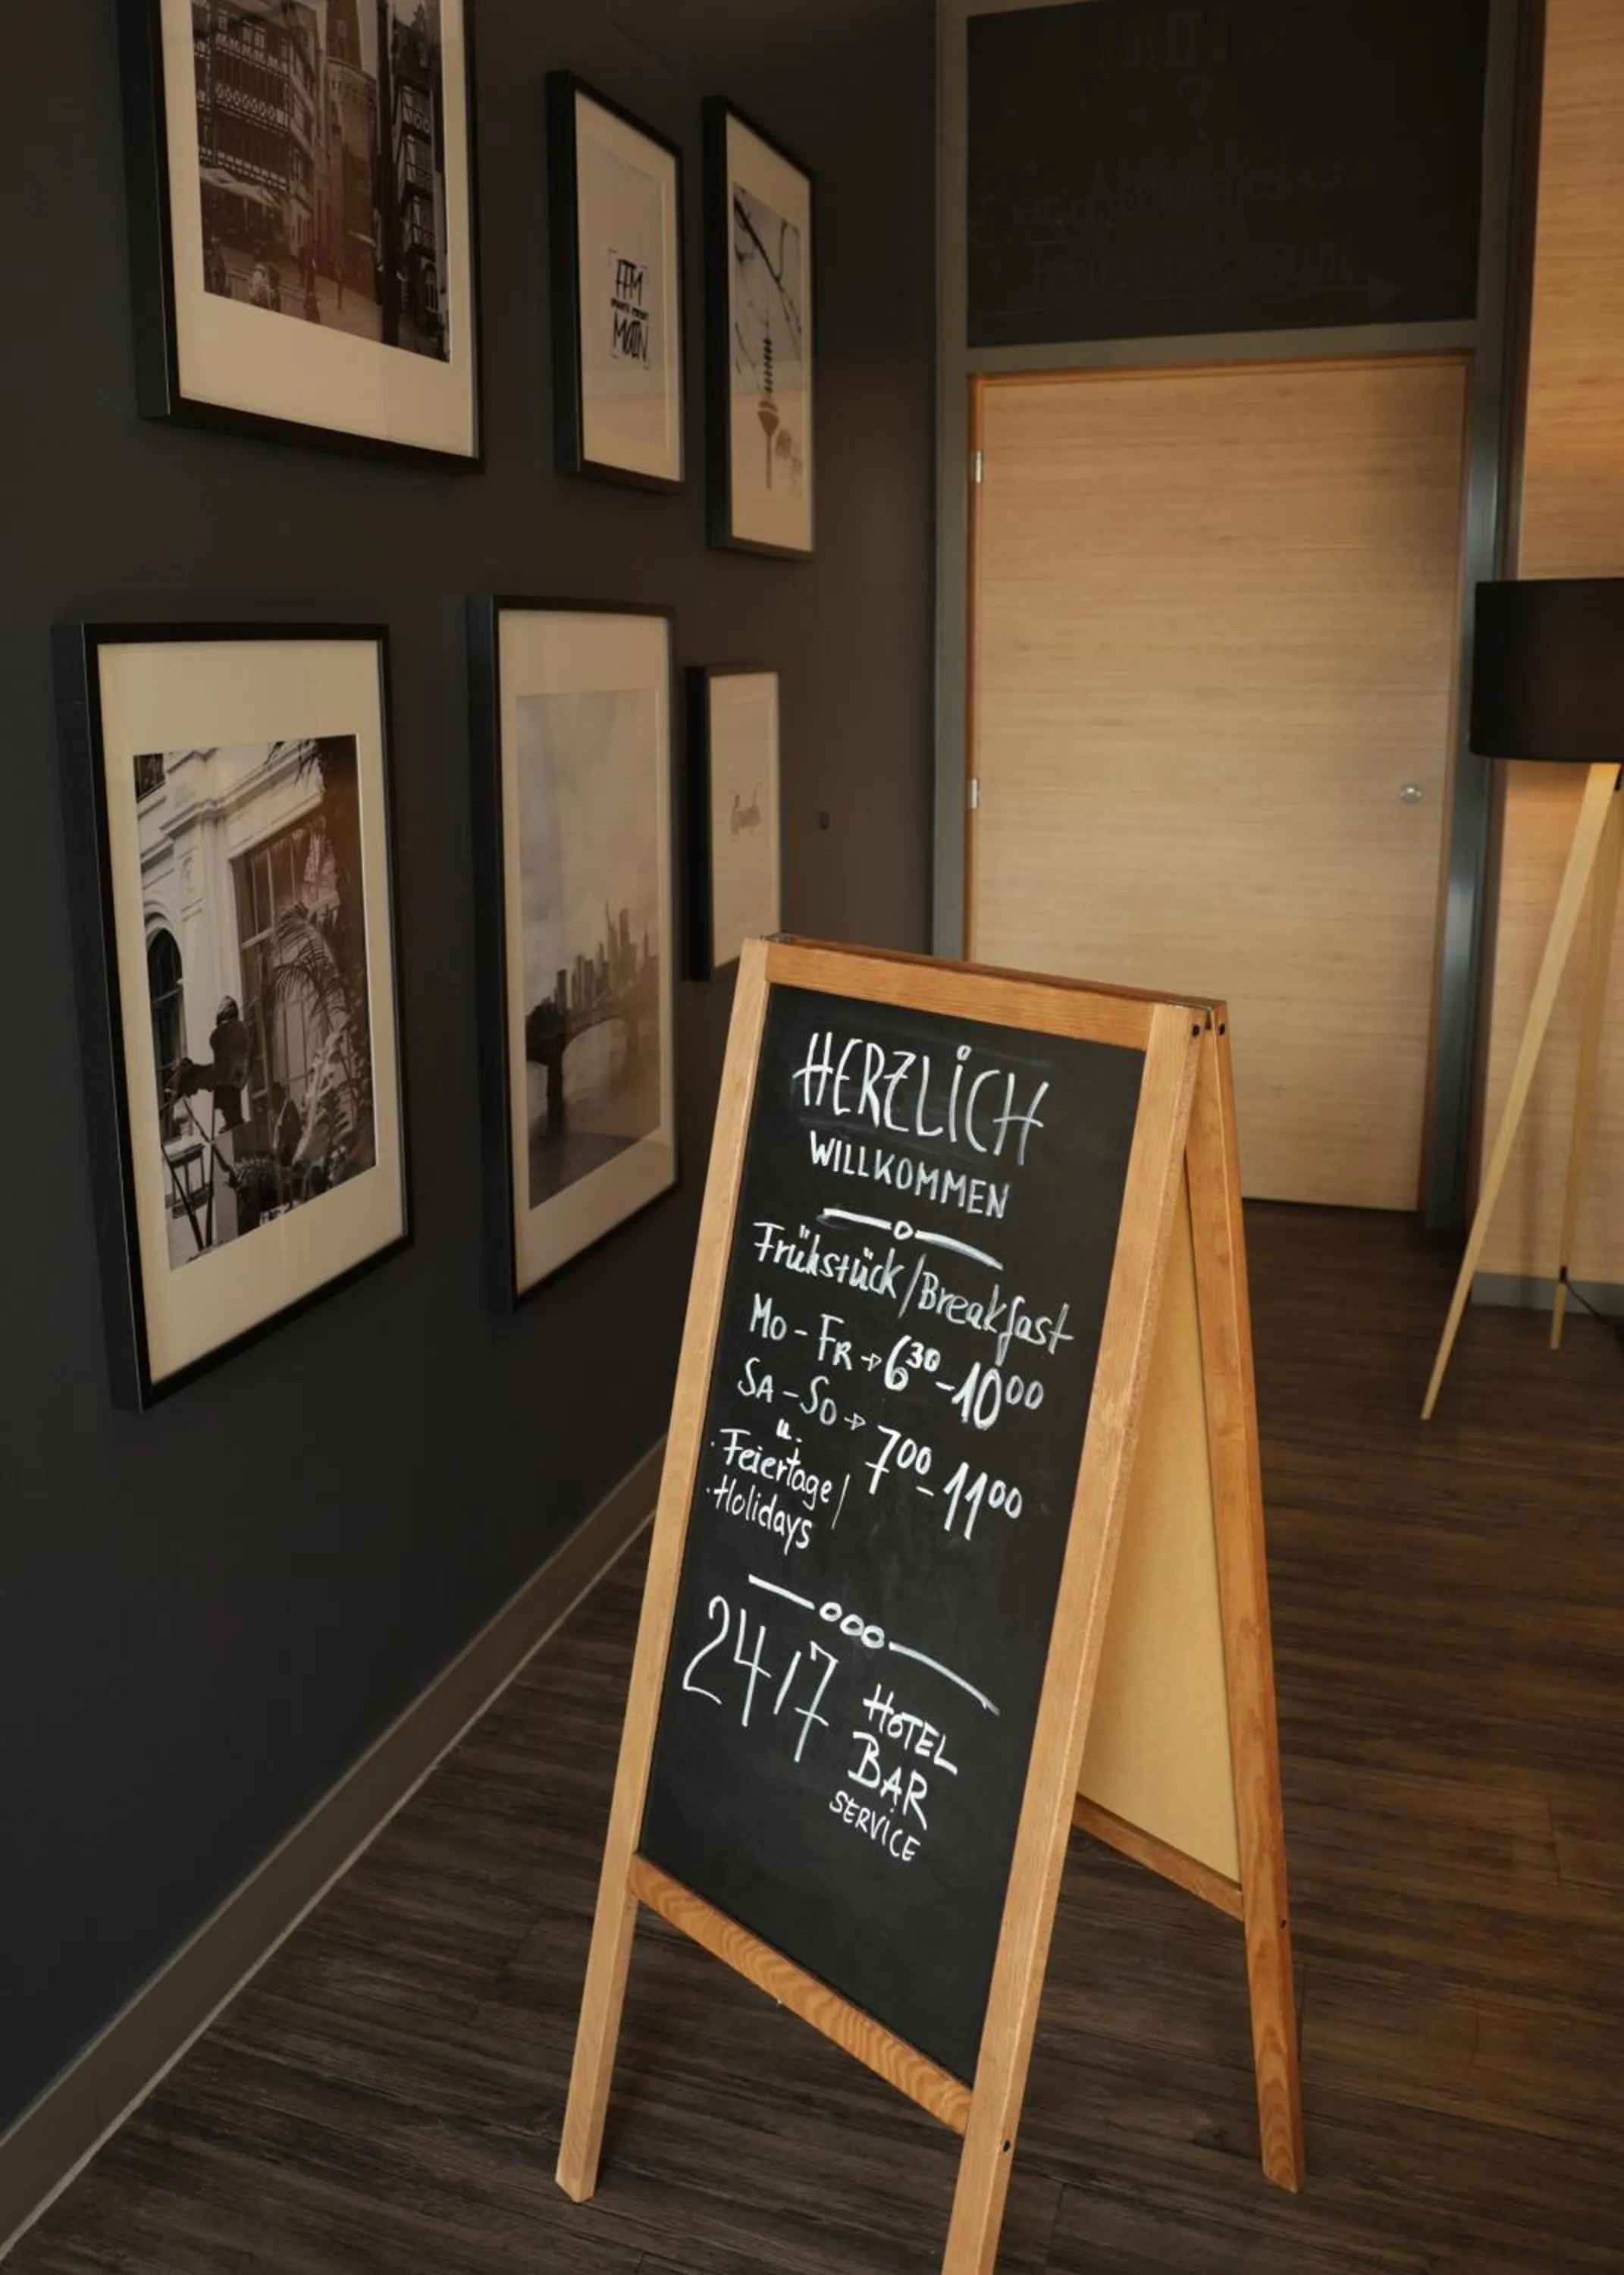 FFM
MAIN
HERZLiCH
WILLKOMMEN
Frühstück/Breakfast
Mo - FR → 6³⁰ - 10⁰⁰
SA - SO → 7⁰⁰ - 11⁰⁰
u.
· Feiertage/
· Holidays
24/7
HOTEL
BAR
SERViCE